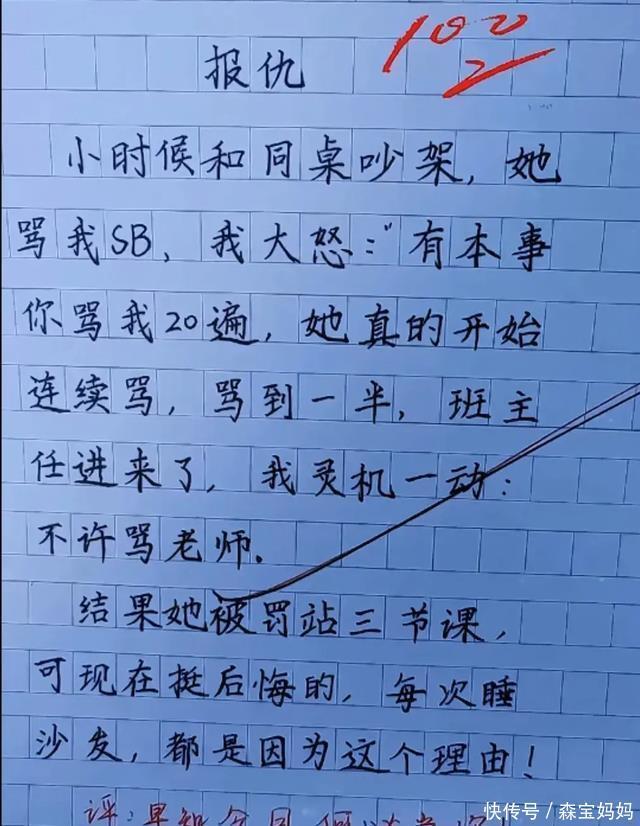 100
报仇
小时候和同桌吵架，她
骂我SB，我大怒："有本事
你骂我20遍，她真的开始
连续骂，骂到一半，班主
任进来了，我灵机一动：
不许骂老师.
结果她被罚站三节课，
可现在挺后悔的，每次睡
沙发，都是因为这个理由！
评：早知今日
快传号／森宝妈妈